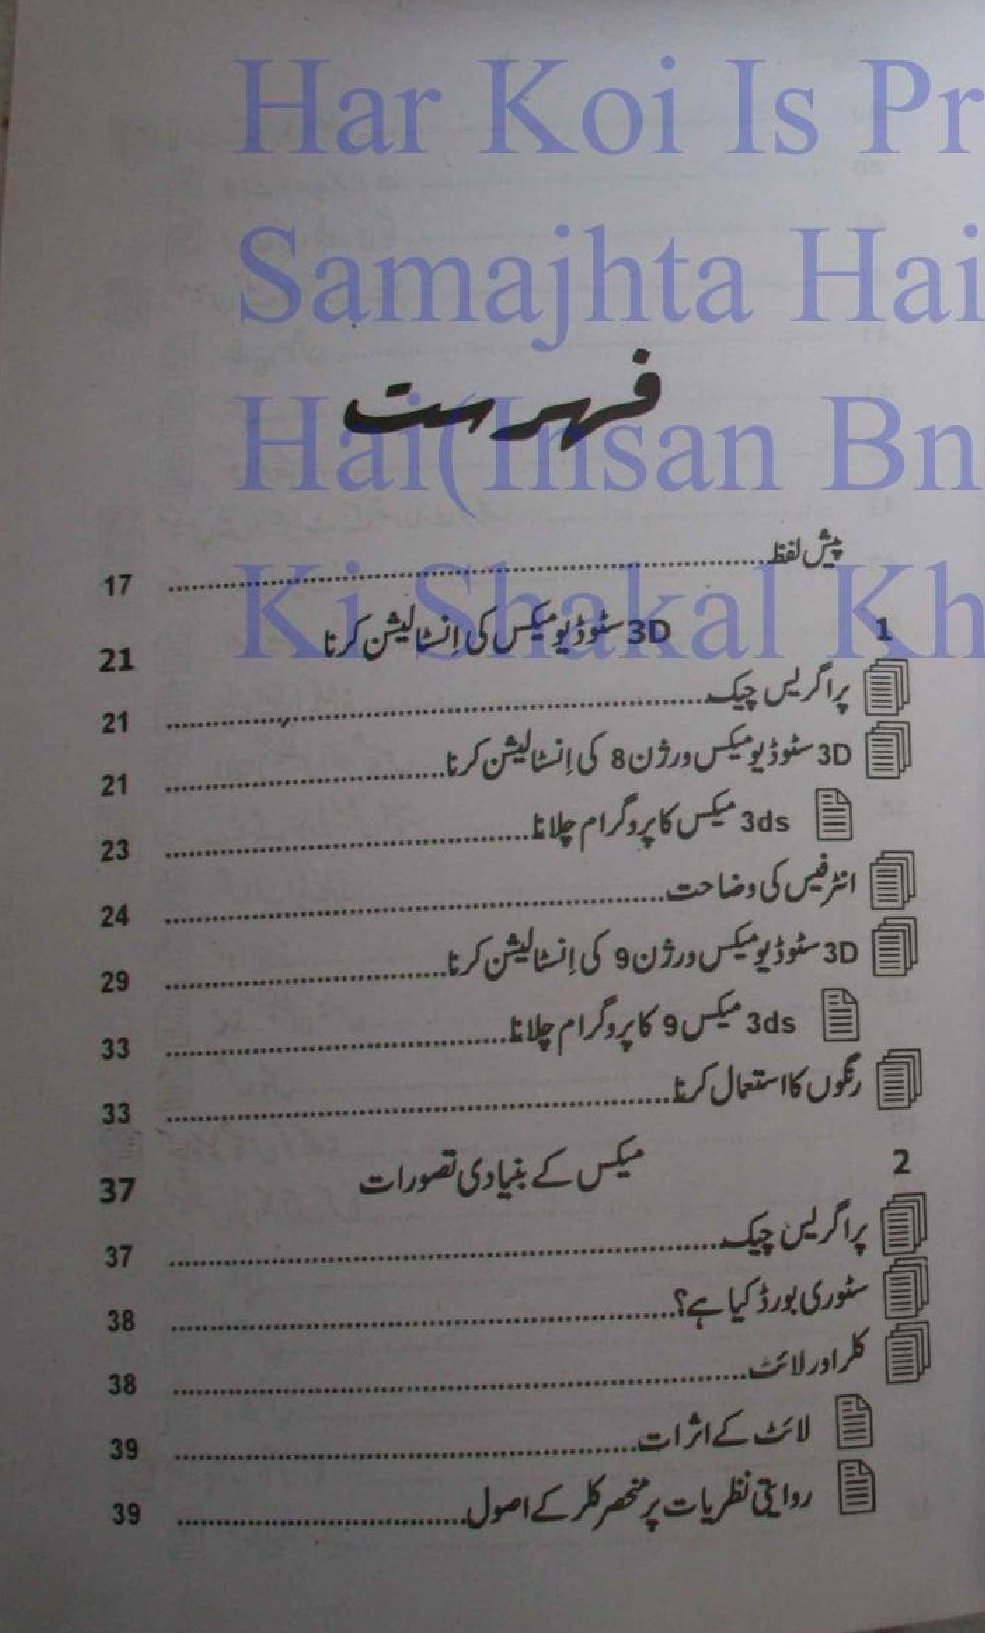 Har Koi Is Pr
Samajhta Hai
Hai(Insan Bn
Ki Shakal Kh
فہرست
پیش لفظ 17
1 3D سٹوڈیو میکس کی اِنسٹالیشن کرنا 21
پراگریس چیک 21
3D سٹوڈیو میکس ورژن 8 کی اِنسٹالیشن کرنا 21
3ds میکس کا پروگرام چلانا 23
انٹرفیس کی وضاحت 24
3D سٹوڈیو میکس ورژن 9 کی اِنسٹالیشن کرنا 29
3ds میکس 9 کا پروگرام چلانا 33
رنگوں کا استعمال کرنا 33
2 میکس کے بنیادی تصورات 37
پراگریس چیک 37
سٹوری بورڈ کیا ہے؟ 38
کلر اور لائٹ 38
لائٹ کے اثرات 39
روایتی نظریات پر منحصر کلر کے اصول 39